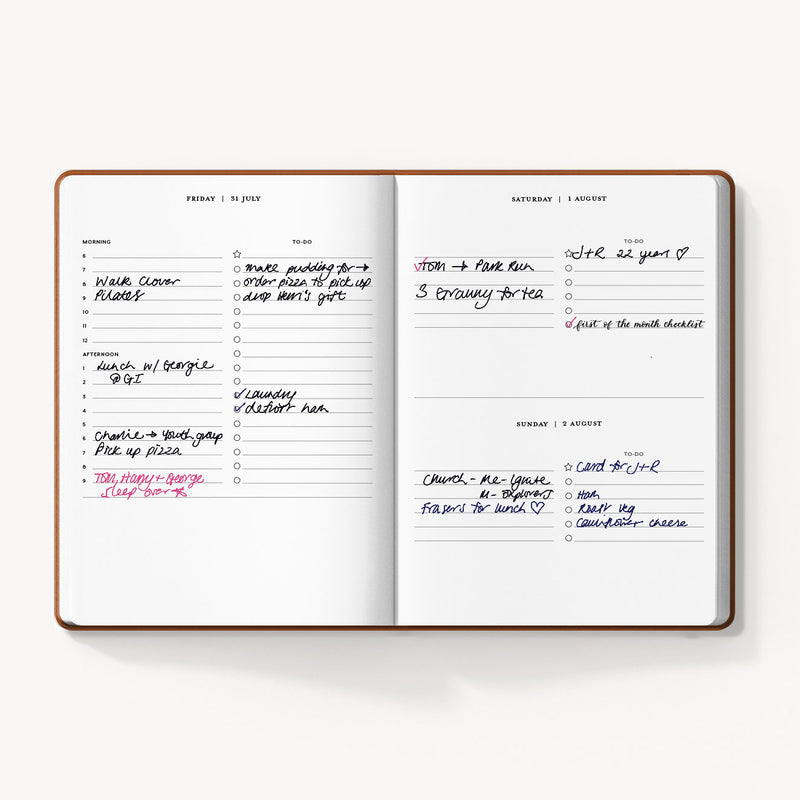 FRIDAY | 31 JULY
MORNING
TO-DO
6
7
make pudding for →
8 Walk Clover
order pizza to pick up
9 Pilates
drop Henri's gift
10
11
12
AFTERNOON
1 Lunch w/ Georgie
2 @GI
3
Laundry
4
defrost ham
5
6 Charlie → Youth group
7 Pick up pizza
8
9 Tom, Harry + George
sleep over
SATURDAY | 1 AUGUST
TO-DO
J+R 22 years ♡
Tom → Park Run
3 Granny for tea
first of the month checklist
SUNDAY | 2 AUGUST
TO-DO
Card for J+R
Church - Me - Ignite
M - Explorers
Ham
Frasers for lunch ♡
Roast veg
Cauliflower cheese